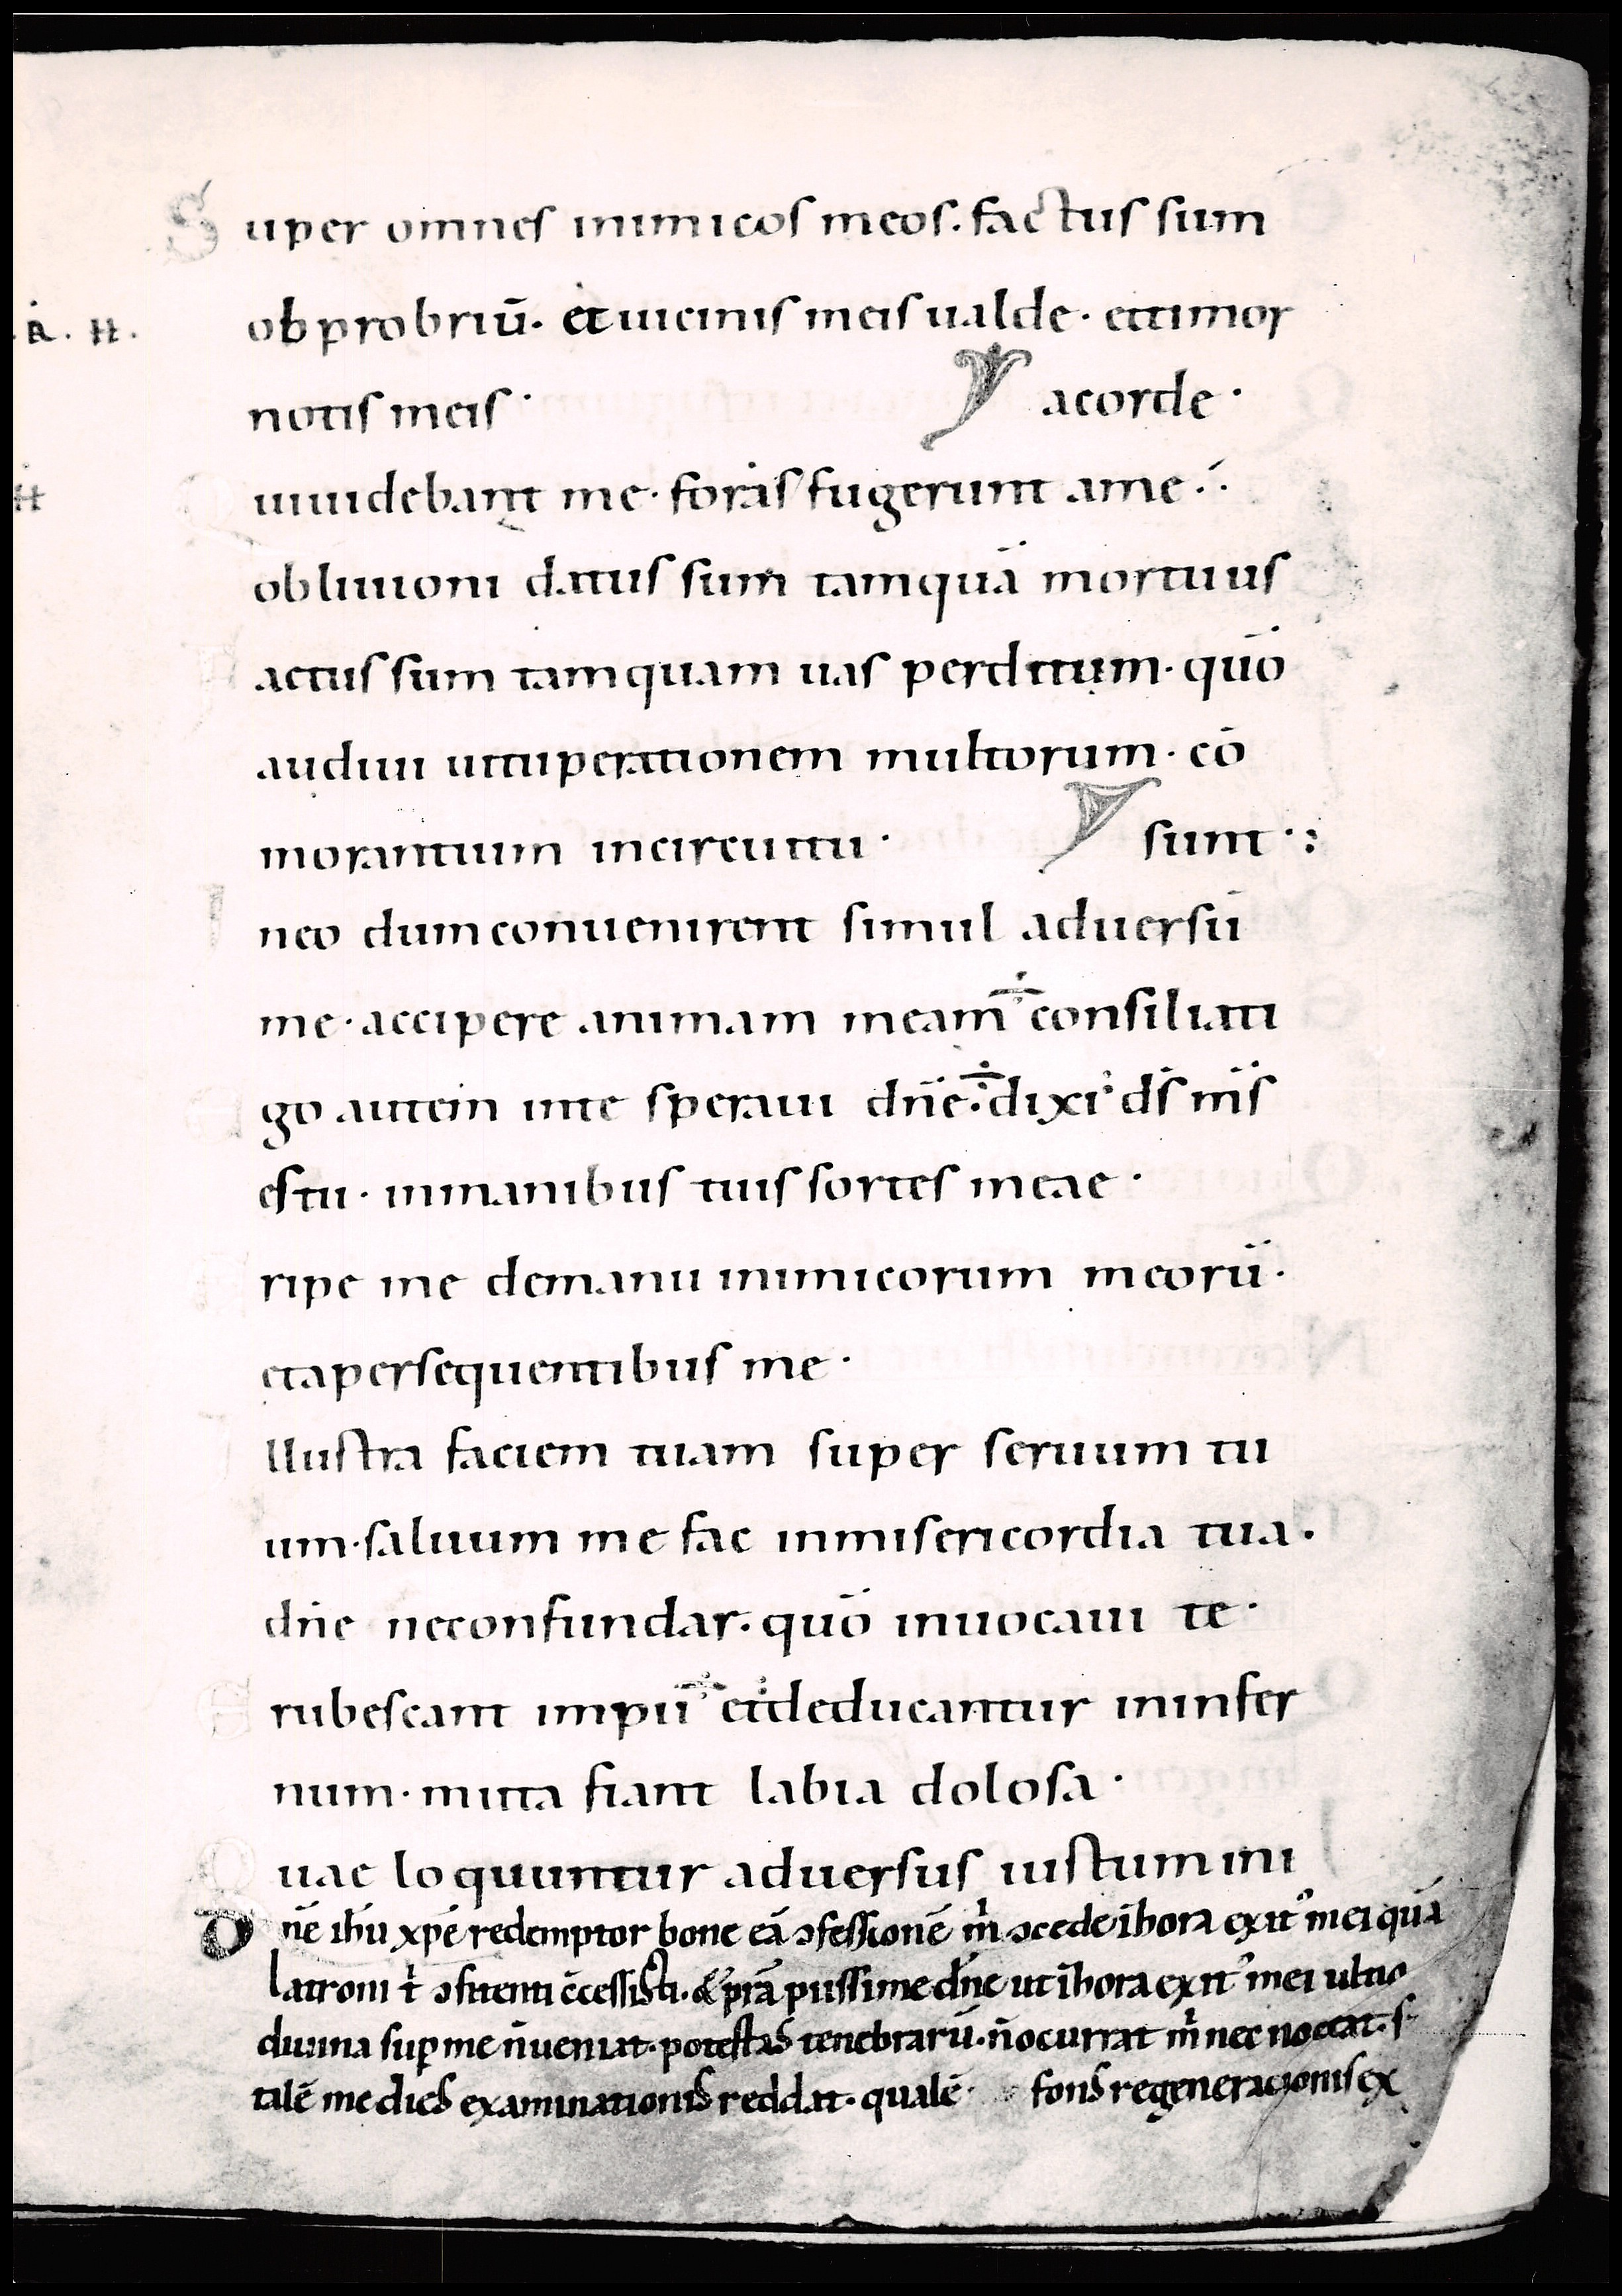 Super omnes inimicos meos. factus sum
obprobriū. et uicinis meis ualde. et timor
notis meis. a corde.
Qui uidebant me. foras fugerunt a me.
obliuioni datus sum tamquā mortuus
Factus sum tamquam uas perditum. qūo
audiui uituperationem multorum. cō
morantium in circuitu. sunt.
In eo dum conuenirent simul aduersū
me. accipere animam meam consiliati
Ego autem in te speraui dn̄e. dixi d̄s m̄s
es tu. in manibus tuis sortes meae.
Eripe me de manu inimicorum meorū.
et a persequentibus me.
Illustra faciem tuam super seruum tu
um. saluum me fac in misericordia tua.
dn̄e ne confundar. qūo inuocaui te.
Erubescant impii et deducantur in infer
num. muta fiant labia dolosa.
Quae loquuntur aduersus iustum ini
Dn̄e ih̄u xp̄e redemptor bone eā ɔfessionē m̄ ɔcede ī hora exit᾿ mei quā
latroni t̄ ɔfitenti c̄cessisti. & p̄ra piissime dn̄e ut ī hora exit᾿ mei ultio
diuina sup me n̄ ueniat. potestas tenebrarū. n̄ ocurrat m̄ nec noceat. s
talē me dies examinationis reddat. qualē fons regeneracionis ex